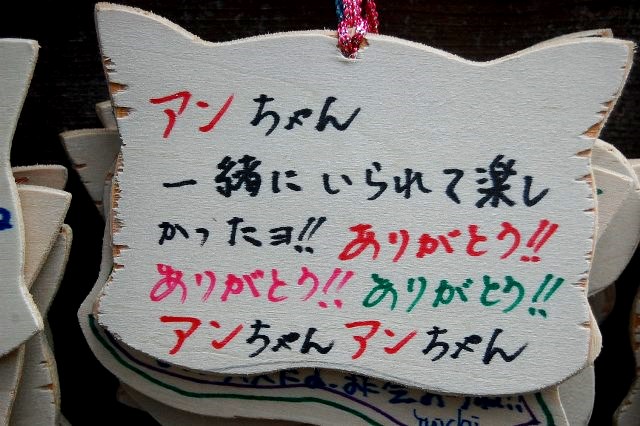 アンちゃん
一緒にいられて楽し
かったヨ!! ありがとう!!
ありがとう!! ありがとう!!
アンちゃん アンちゃん